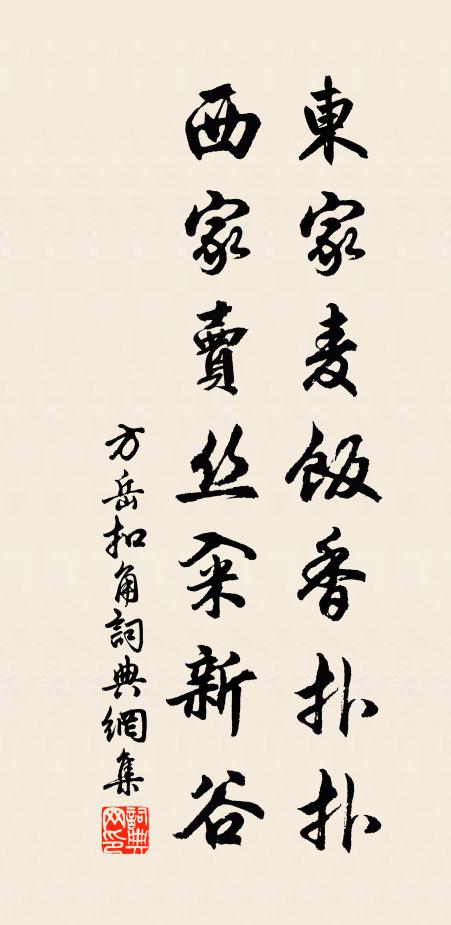 東家麦飯香扑扑
西家賣丝籴新谷
方岳扣角詞典網集
詞典网印